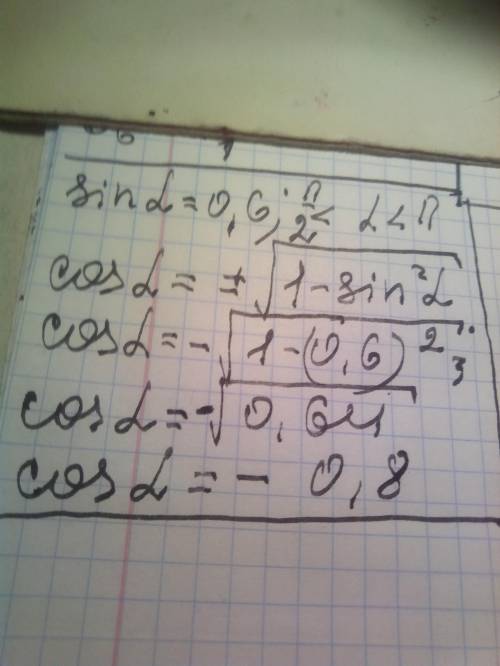 sin α = 0,6; π/2 < α < π
cos α = ± √(1 - sin² α)
cos α = - √(1 - (0,6)²);
cos α = - √0,64
cos α = - 0,8